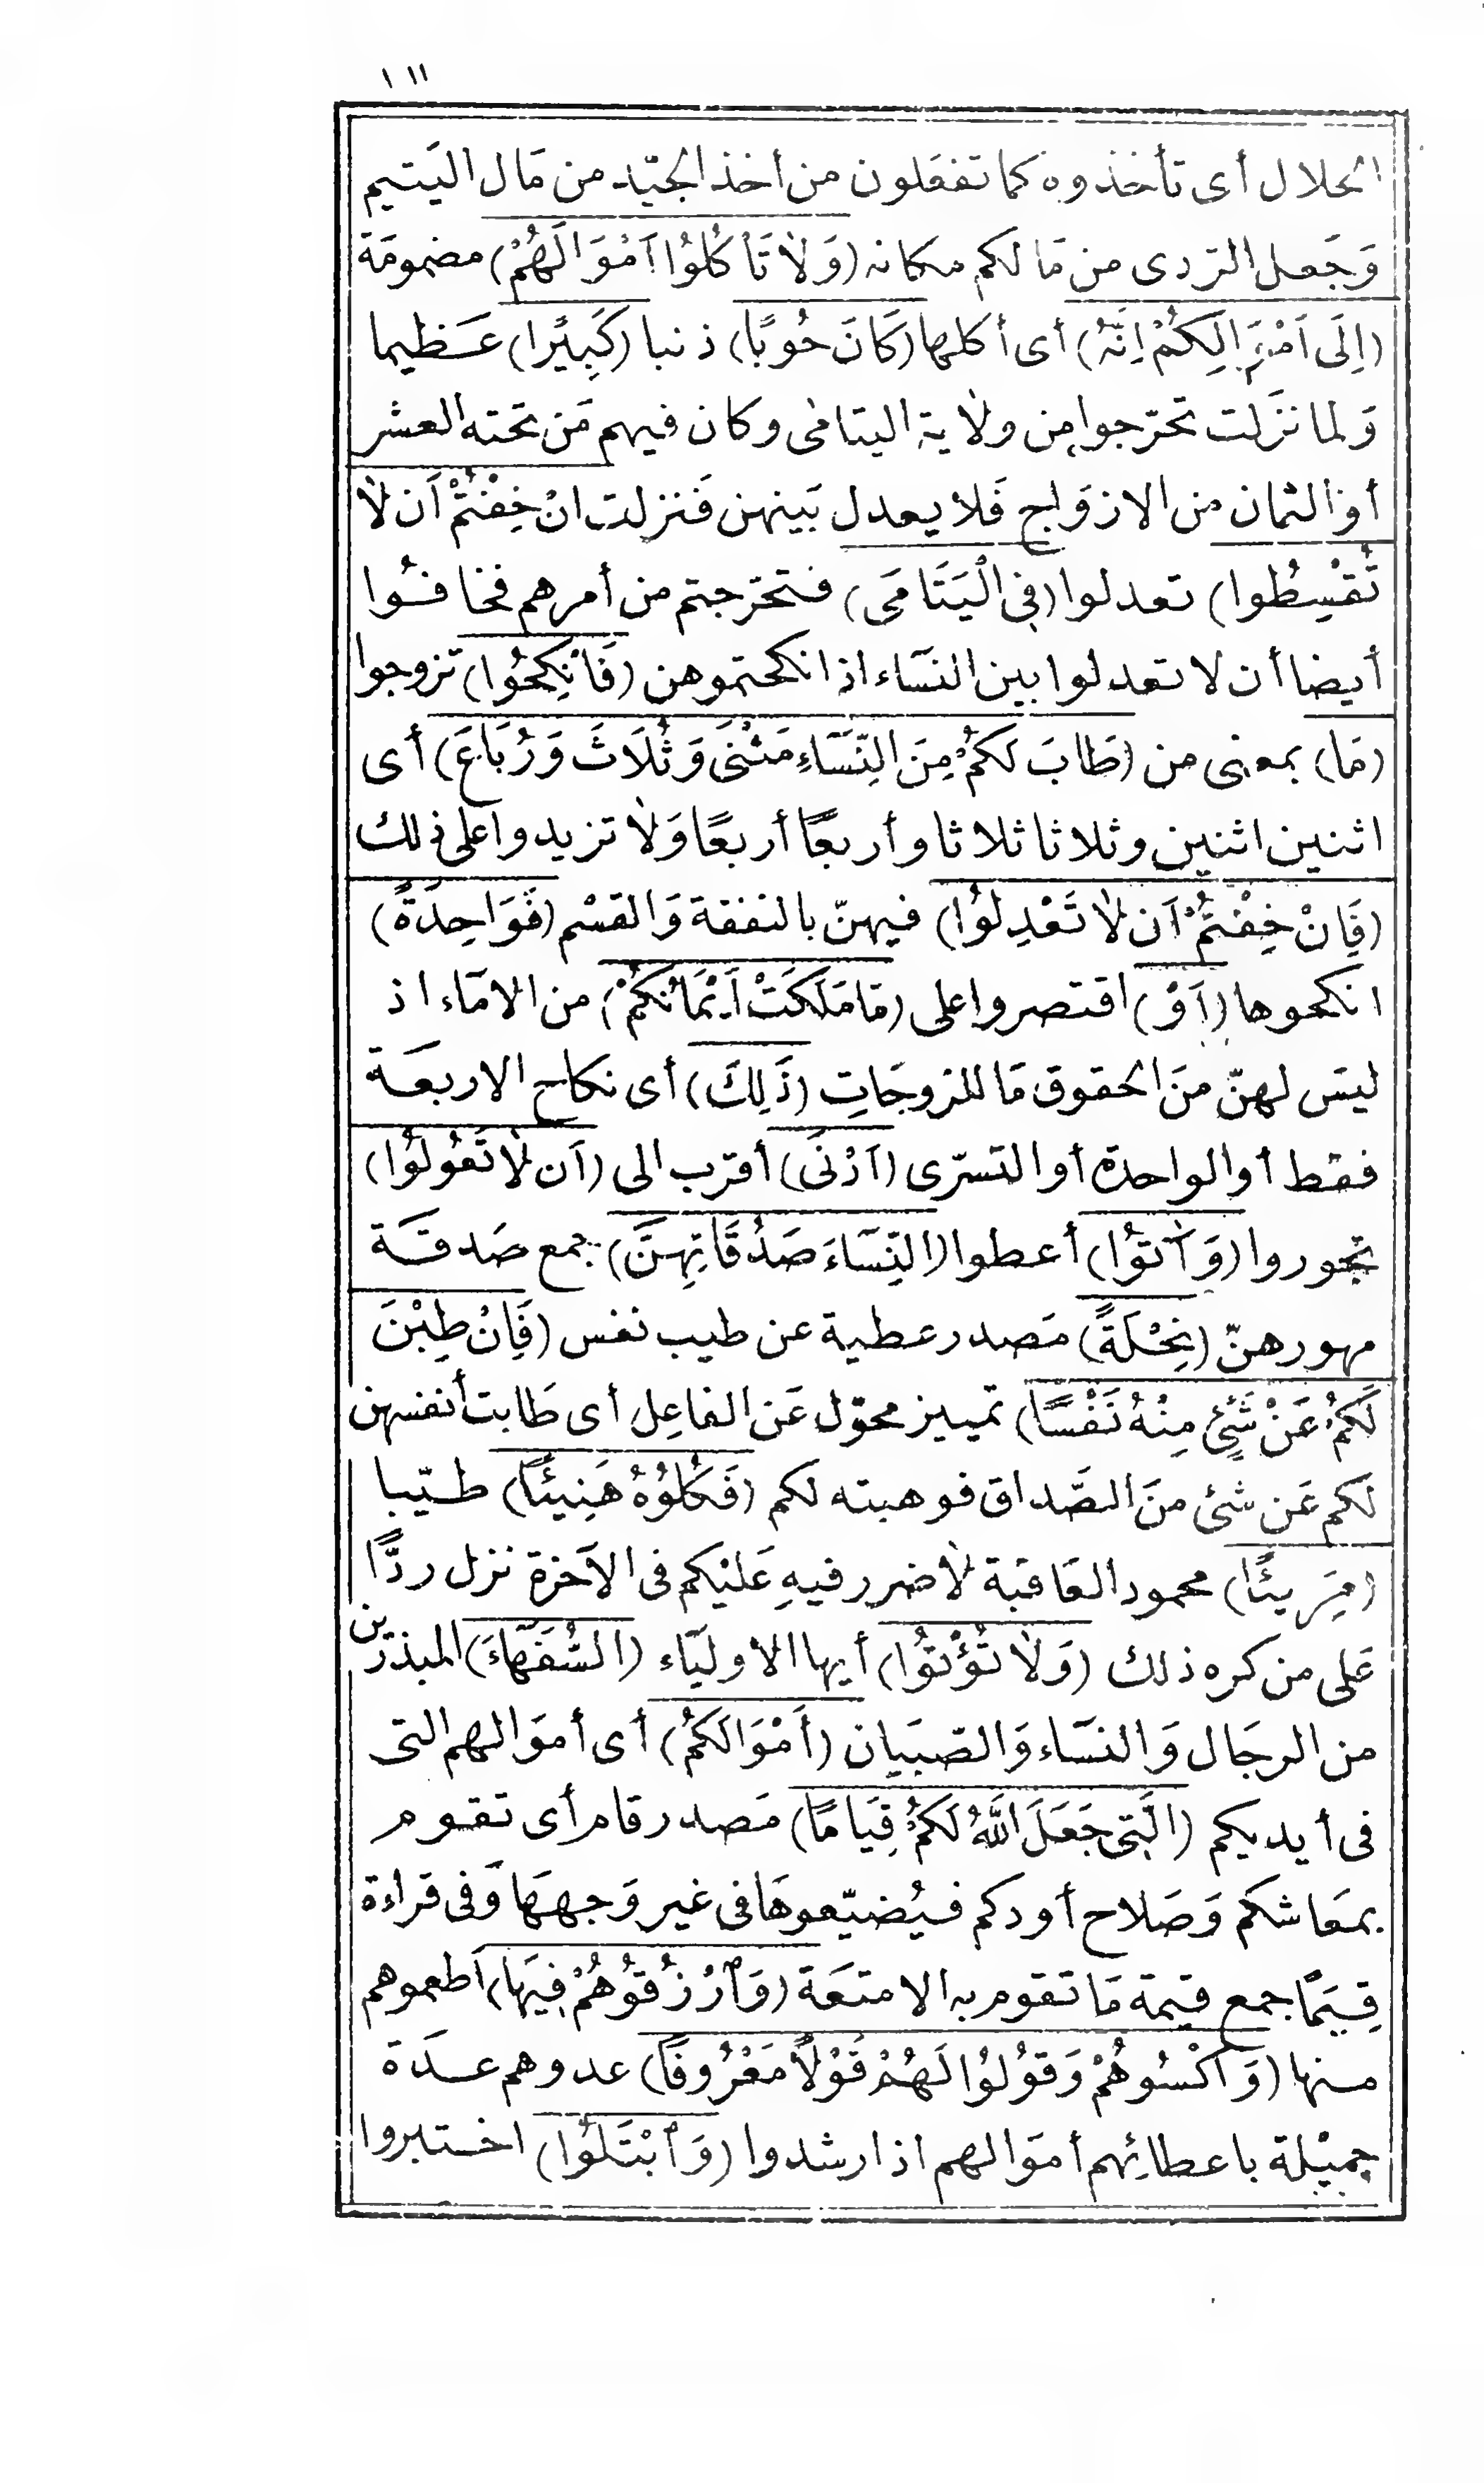 ١١١
الحلال أى تأخذوه كما تفعلون من أخذ الجيّد من مَال اليَتيم
وَجَعل الردى من مَالكم مكانه (وَلَا تَأْكُلُوٓا أَمْوَالَهُمْ) مضمومَة
(إِلَى أَمْوَالِكُمْ إِنَّهُ) أى أكلها (كَانَ حُوبًا) ذنبا (كَبِيرًا) عَظيما
وَلما نزَلت تحرّجوا من ولاية اليتامٰى وكان فيهم مَن تحته العشر
أو الثمان من الازوَاج فَلا يعدل بَينهن فَنزلت انْ خِفْتُمْ أَن لَا
تُقْسِطُوا) تعدلوا (فِى الْيَتَامَى) فتحرّجتم من أمرهم فخافُوا
أيضا أن لا تعدلوا بين النسَاء اذا نكحتموهن (فَانْكِحُوا) تزوجوا
(مَا) بمعنى من (طَابَ لَكُمْ مِنَ النِّسَاءِ مَثْنَى وَثُلَاثَ وَرُبَاعَ) أى
اثنين اثنين وثلاثا ثلاثا وأربعًا أربعًا وَلَا تزيدوا على ذلك
(فَإِنْ خِفْتُمْ أَن لَا تَعْدِلُوا) فيهنّ بالنفقة وَالقسْم (فَوَاحِدَةً)
انكحوها (أَوْ) اقتصروا على (مَا مَلَكَتْ أَيْمَانُكُمْ) من الامَاء اذ
ليسَ لهنّ منَ الحقوق مَا للزوجَاتِ (ذَلِكَ) أى نكاح الاربعَة
فقط أو الواحدة أو التسرّى (أَدْنَى) أقرَب الى (أَن لَا تَعُولُوا)
تجوروا (وَآتُوا) أعطوا (النِّسَاءَ صَدُقَاتِهِنَّ) جمع صَدقَة
مهورهنّ (نِحْلَةً) مَصدر عطية عن طيب نفس (فَإِنْ طِبْنَ
لَكُمْ عَنْ شَىْءٍ مِنْهُ نَفْسًا) تمييز محوّل عَن الفاعِل أى طَابت أنفسهن
لَكم عَن شئ منَ الصَّداق فوهبته لكم (فَكُلُوهُ هَنِيئًا) طيّبا
(مَرِيئًا) محمود العَاقبة لَا ضرر فيهِ عَليْكم فى الآخرة نزل ردًّا
عَلى من كره ذلك (وَلَا تُؤْتُوا) أيها الاوليَاء (السُّفَهَاءَ) المبذرين
من الرجَال وَالنسَاء وَالصّبيَان (أَمْوَالَكُمُ) أى أموَالهم التى
فى أيديكم (الَّتِى جَعَلَ اللَّهُ لَكُمْ قِيَامًا) مَصدر قام أى تقوم
بمعَاشكم وَصَلاح أودكم فيُضيّعوهَا فى غير وَجههَا وَفى قراءة
قِيَمًا جمع قيمة مَا تقوم به الامتعَة (وَٱرْزُقُوهُمْ فِيهَا) أطعموهم
منها (وَٱكْسُوهُمْ وَقُولُوا لَهُمْ قَوْلًا مَعْرُوفًا) عدوهم عدَة
جميْلة باعطائهم أموَالهم اذا رشدوا (وَٱبْتَلُوا) اختبروا